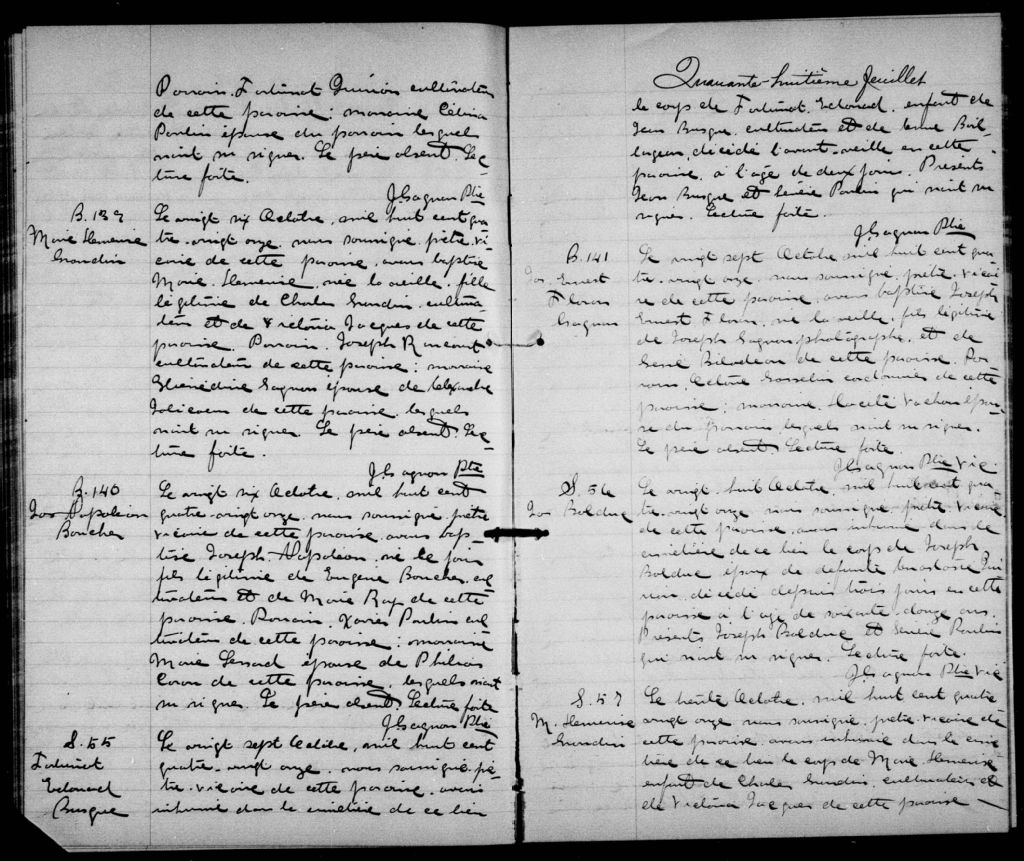 Parrain, Fortunat Quirion cultivateur
de cette paroisse; marraine Célina
Poulin épouse du parrain lesquels
n'ont su signer. Le père absent. Lec-
ture faite.
J Gagnon Ptre
B. 139
Marie Hermenie
Grondin
Le vingt six Octobre, mil huit cent qua-
tre-vingt onze, nous soussigné, prêtre vi-
caire de cette paroisse, avons baptisé
Marie, née la veille, fille
légitime de Charles Grondin, cultiva-
teur et de Victoria Jacques de cette
paroisse. Parrain, Joseph
cultivateur de cette paroisse; marraine
Gagnon épouse de
Jolicoeur de cette paroisse, lesquels
n'ont su signer. Le père absent. Lec-
ture faite.
J Gagnon Ptre
B. 140
Jos Napoléon
Boucher
Le vingt six Octobre, mil huit cent
quatre-vingt onze, nous soussigné, prêtre
vicaire de cette paroisse, avons bap-
tisé Joseph Napoléon, né ce jour
fils légitime de Eugène Boucher, cul-
tivateur et de Marie Roy de cette
paroisse. Parrain, Xavier Poulin cul-
tivateur de cette paroisse; marraine
Marie Lessard épouse de Philias
Caron de cette paroisse, lesquels n'ont
su signer. Le père absent. Lecture faite
J Gagnon Ptre
S. 55
Fortunat
Edouard
Busque
Le vingt sept Octobre, mil huit cent
quatre-vingt onze, nous soussigné, prê-
tre-vicaire de cette paroisse, avons
inhumé dans le cimetière de ce lieu
Quarante-huitième feuillet
le corps de Fortunat Edouard, enfant de
Jean Busque, cultivateur et de
décédé l'avant-veille en cette
paroisse, à l'age de deux jours. Présents
Jean Busque et Poulin qui n'ont su
signer. Lecture faite.
J Gagnon Ptre
B. 141
Jos. Ernest
Gagnon
Le vingt sept Octobre mil huit cent qua-
tre-vingt onze, nous soussigné, prêtre-vicai-
re de cette paroisse, avons baptisé Joseph
Ernest, né la veille, fils légitime
de Joseph Gagnon, photographe, et de
Bilodeau de cette paroisse. Par-
rain, Gosselin cordonnier de cette
paroisse; marraine, Vachon épou-
se du parrain, lesquels n'ont su signer.
Le père absent. Lecture faite.
J Gagnon Ptre Vic.
S. 56
Jos Bolduc
Le vingt-huit Octobre, mil huit cent qua-
tre-vingt onze, nous soussigné prêtre vicaire
de cette paroisse, avons inhumé dans le
cimetière de ce lieu le corps de Joseph
Bolduc époux de défunte Anastasie Qui-
rion, décédé depuis trois jours en cette
paroisse à l'age de soixante-douze ans.
Présents Joseph Bolduc et Poulin
qui n'ont su signer. Lecture faite.
J. Gagnon Ptre Vic
S. 57
M. Hermenie
Grondin
Le trente Octobre, mil huit cent quatre
vingt onze nous soussigné, prêtre-vicaire de
cette paroisse, avons inhumé dans le cime-
tière de ce lieu le corps de Marie
enfant de Charles Grondin, cultivateur et
de Victoria Jacques de cette paroisse